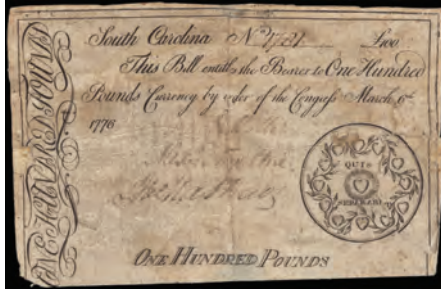 South Carolina No. 1721 £100
This Bill entitles the Bearer to One Hundred
Pounds Currency by order of the Congress March 6th
1776
QUIS
SEPARABIT
ONE HUNDRED POUNDS
ONE HUNDRED POUNDS